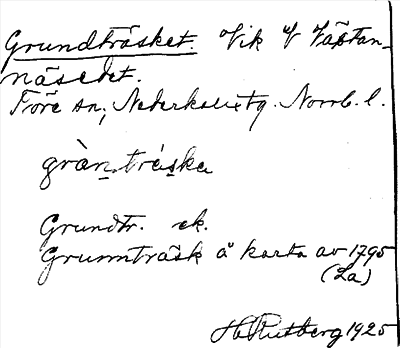 Grundträsket. Vik V Västan-
näsedet.
Töre sn, Nederkalix tg. Norrb. l.
gràn̠träs̠ka
Grundtr. ek.
Grunnträsk å karta av 1795
(La)
H. Rutberg 1925